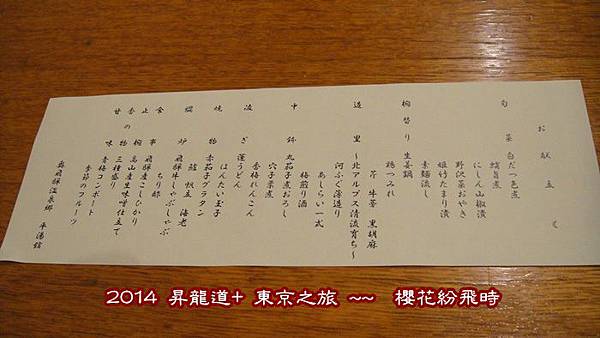 お献立
旬菜 白だつ色煮
鮑旨煮
にしん山椒漬
野沢菜おやき
姫竹たまり漬
素麺流し
椀替り 生姜鍋
鶏つみれ
芹 牛蒡 黒胡麻
造里 ~北アルプス清流育ち~
河ふぐ薄造り
あしらい一式
梅煎り酒
中鉢 丸茄子煮おろし
穴子東煮
香梅れんこん
凌ぎ 蓮うどん
はんたい玉子
焼物 赤茄子グラタン
鱧 帆立 海老
焜炉 飛騨牛しゃぶしゃぶ
ちり酢
食事 飛騨産こしひかり
止椀 高山産生味噌仕立て
香の物 三種盛り
甘味 青梅コンポート
季節のフルーツ
奥飛騨温泉郷 平湯館
2014 昇龍道+ 東京之旅 ~~ 櫻花紛飛時